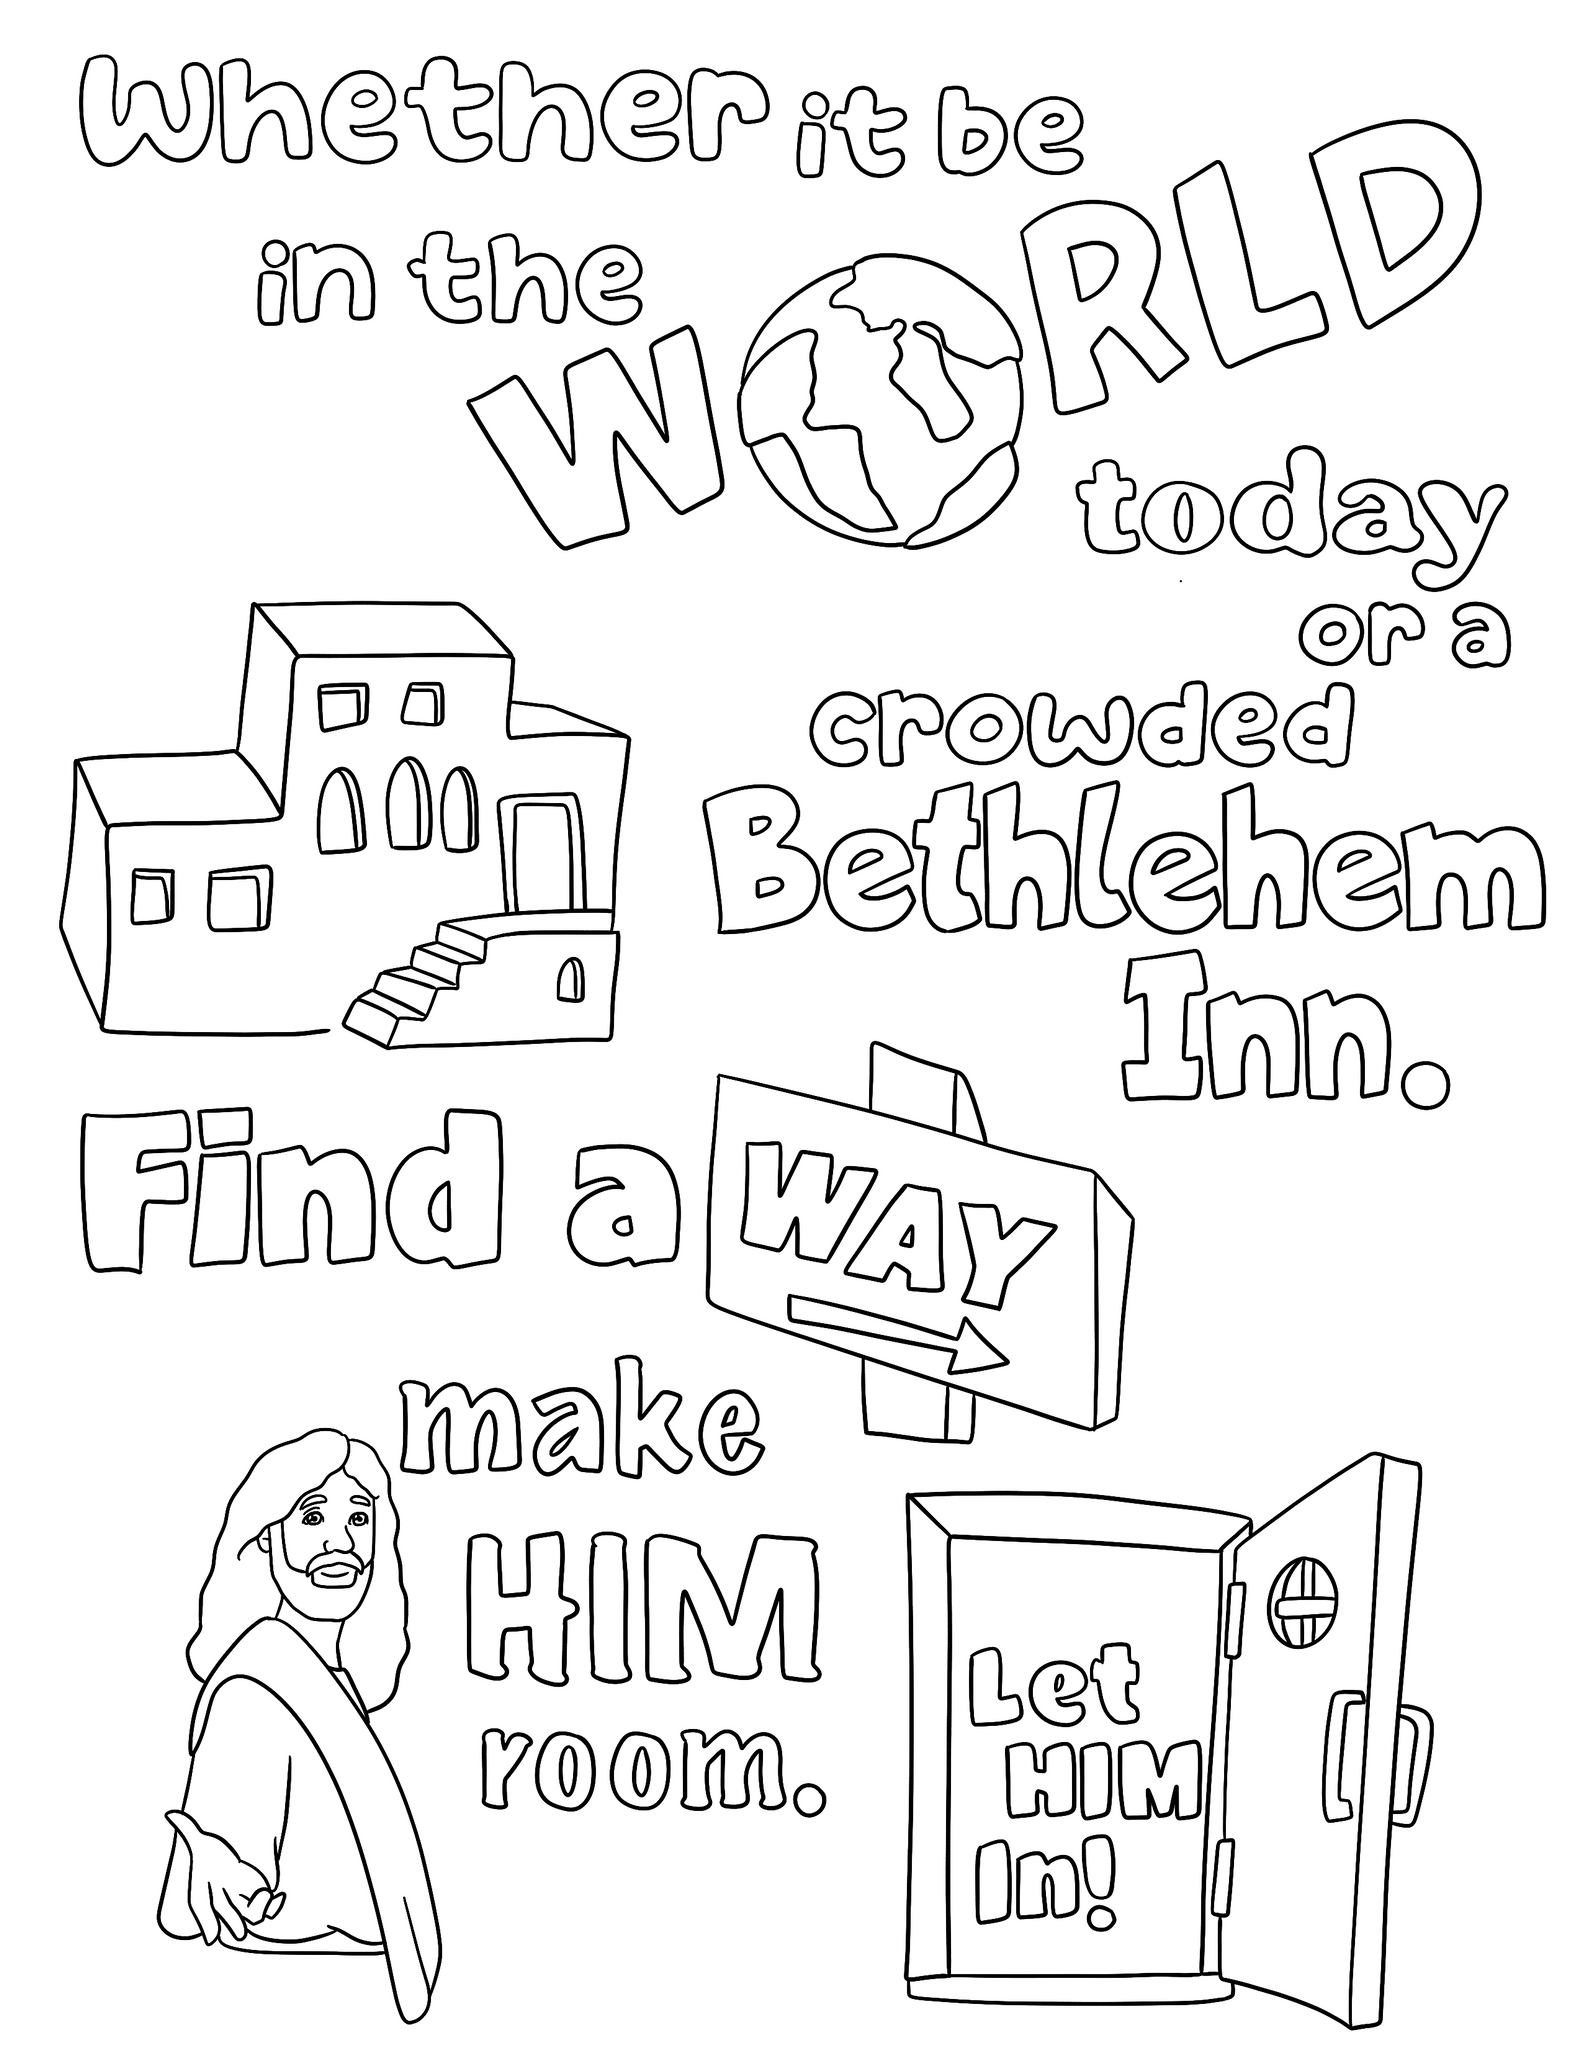 Whether it be
in the WORLD
today
or a
crowded
Bethlehem
Inn.
Find a WAY
make
HIM
room.
Let
HIM
In!